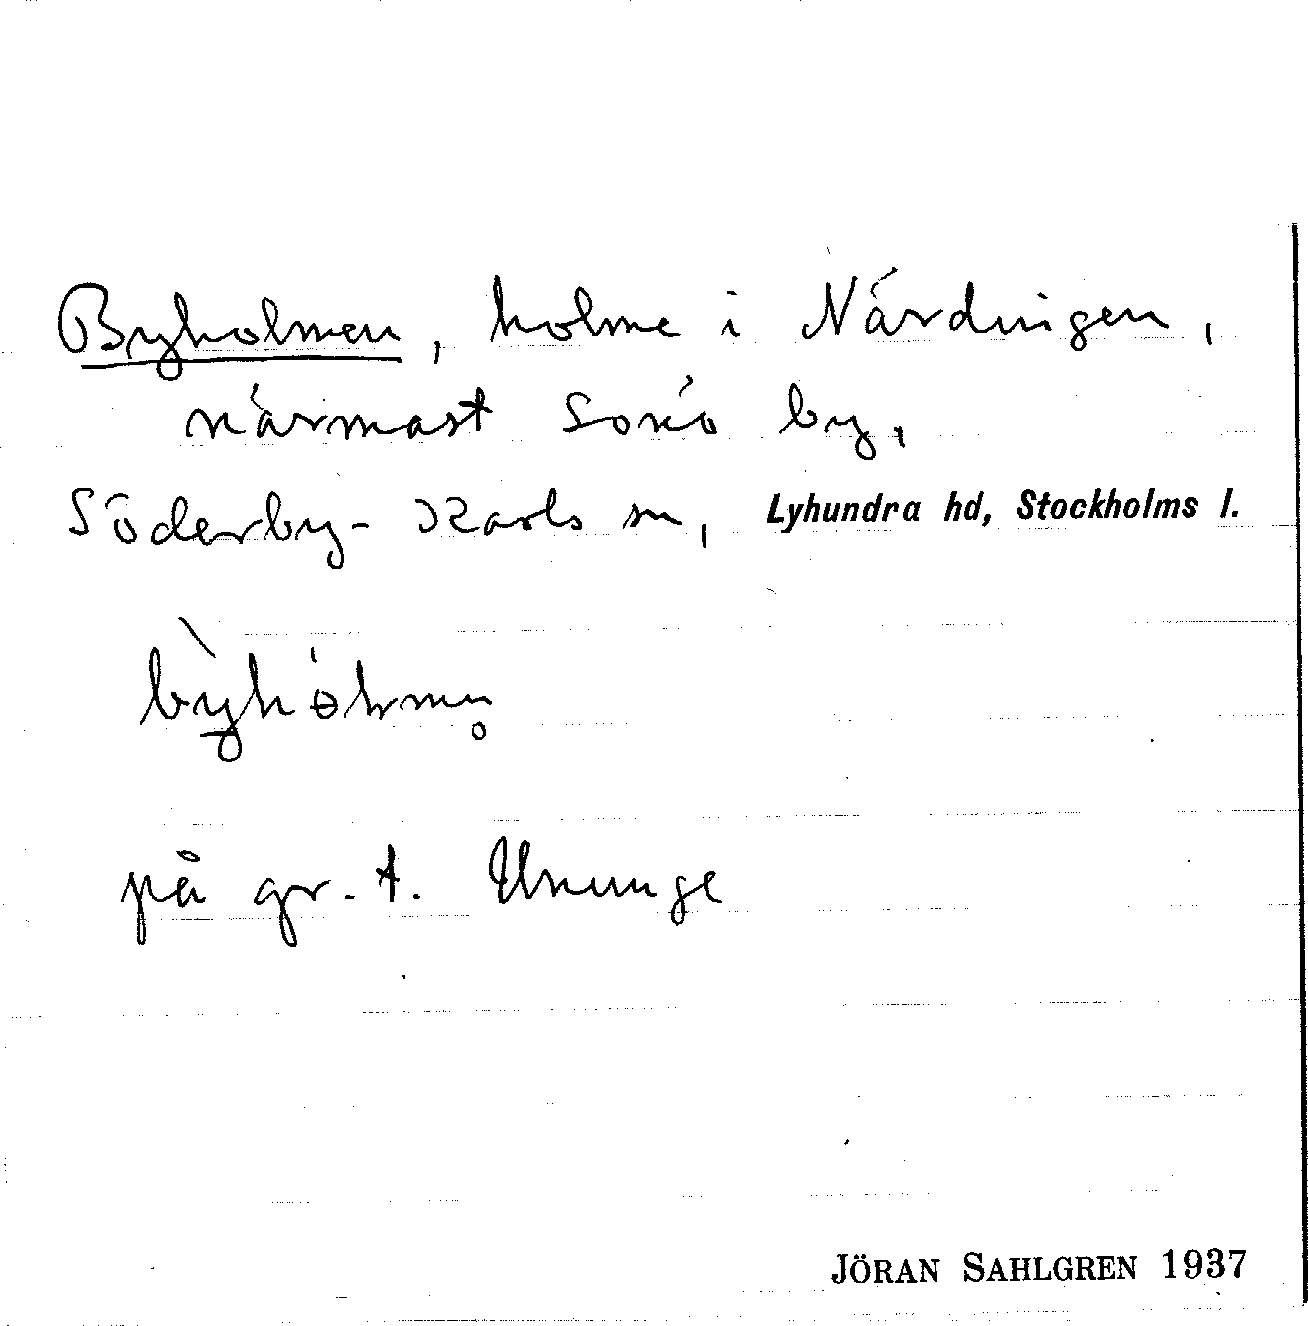 Byholmen, holme i Närdingen,
närmast Sonö by,
Söderby-Karls sn, Lyhundra hd, Stockholms l.
på gr. t. Ununge
JÖRAN SAHLGREN 1937